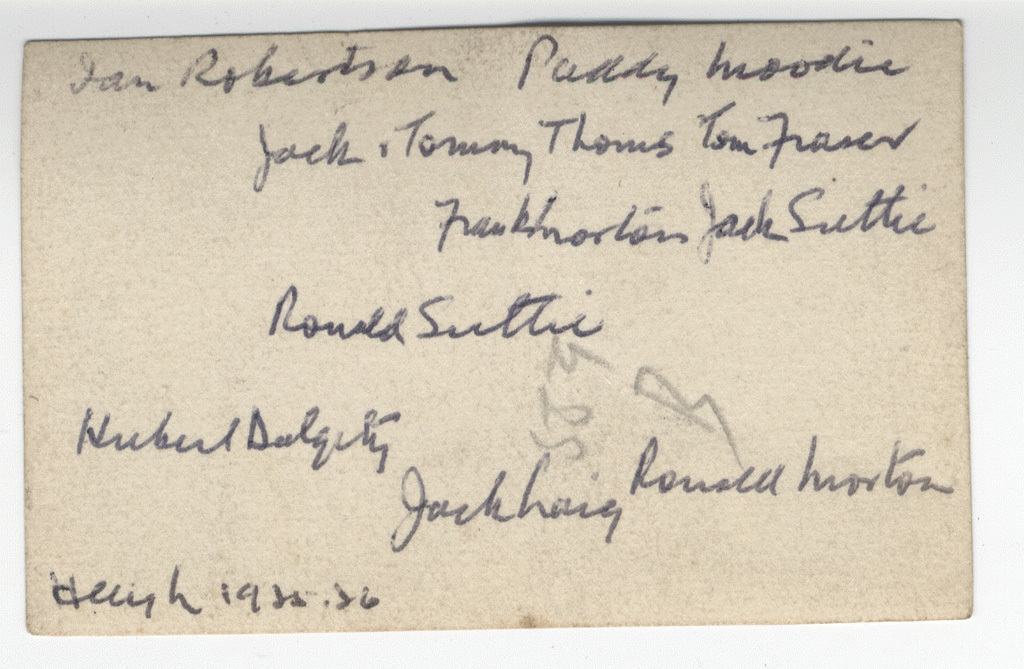 Ian Robertson Paddy Moodie
Jack & Tommy Thoms Tom Fraser
Frank Morton Jack Suttie
Ronald Suttie
Hubert Dalgety
Jack Craig Ronald Morton
1925-26